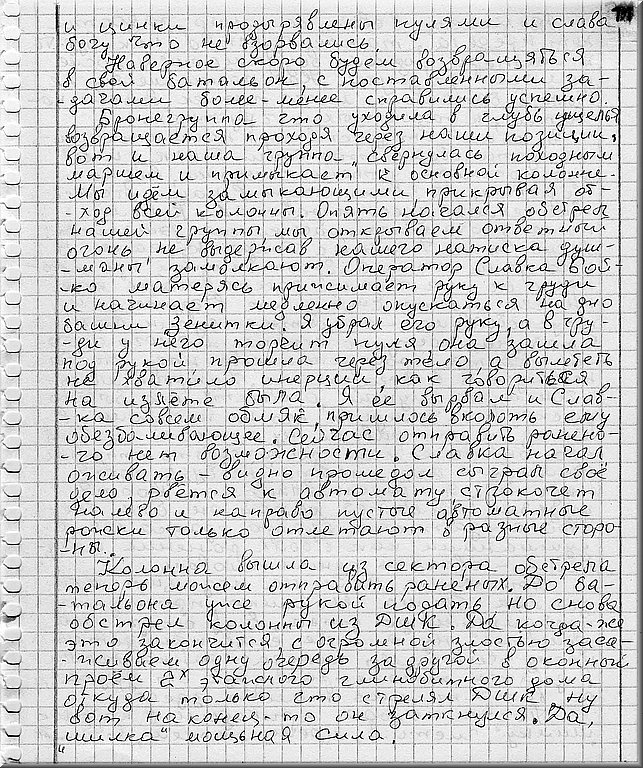 и цинки продырявлены пулями и слава
богу что не взорвались.
Наверное скоро будем возвращяться
в свой батальон, с поставленными за-
-дачами более-менее справились успешно.
Бронегруппа что уходила в глубь ущелья
возвращается проходя через наши позиции,
вот и наша группа "свернулась" походным
маршем и примыкает к основной колонне.
Мы идём замыкающими прикрывая от-
-ход всей колонны. Опять начался обстрел
нашей группы мы открываем ответный
огонь, не выдержав нашего натиска душ-
-маны замолкают. Оператор Славка Вой-
-ко матерясь прижимает руку к груди
и начинает медленно опускаться на дно
башни Зенитки. Я убрал его руку, а в гру-
-ди у него торчит пуля она зашла
под рукой, прошла через тело, а вылететь
не хватило инерции, как говориться
на излёте была. Я её вырвал и Слав-
-ка совсем обмяк, пришлось вколоть ему
обезболивающее. Сейчас отправить ранено-
-го нет возможности. Славка начал
оживать - видно промедол сыграл своё
дело, рвётся к автомату, строкочет
налево и направо пустые автоматные
рожки только отлетают в разные сторо-
-ны..
Колонна вышла из сектора обстрела
теперь можем отправать раненых. До ба-
-тальона уже рукой подать, но снова
обстрел колонны из ДШК. Да когда-же
это закончится, с огромной злостью заса-
-живаем одну очередь за другой в оконный
проём 2х этажного глинобитного дома
откуда только что стрелял ДШК, ну
вот наконец-то он заткнулся. Да,
"шилка" мощьная сила.